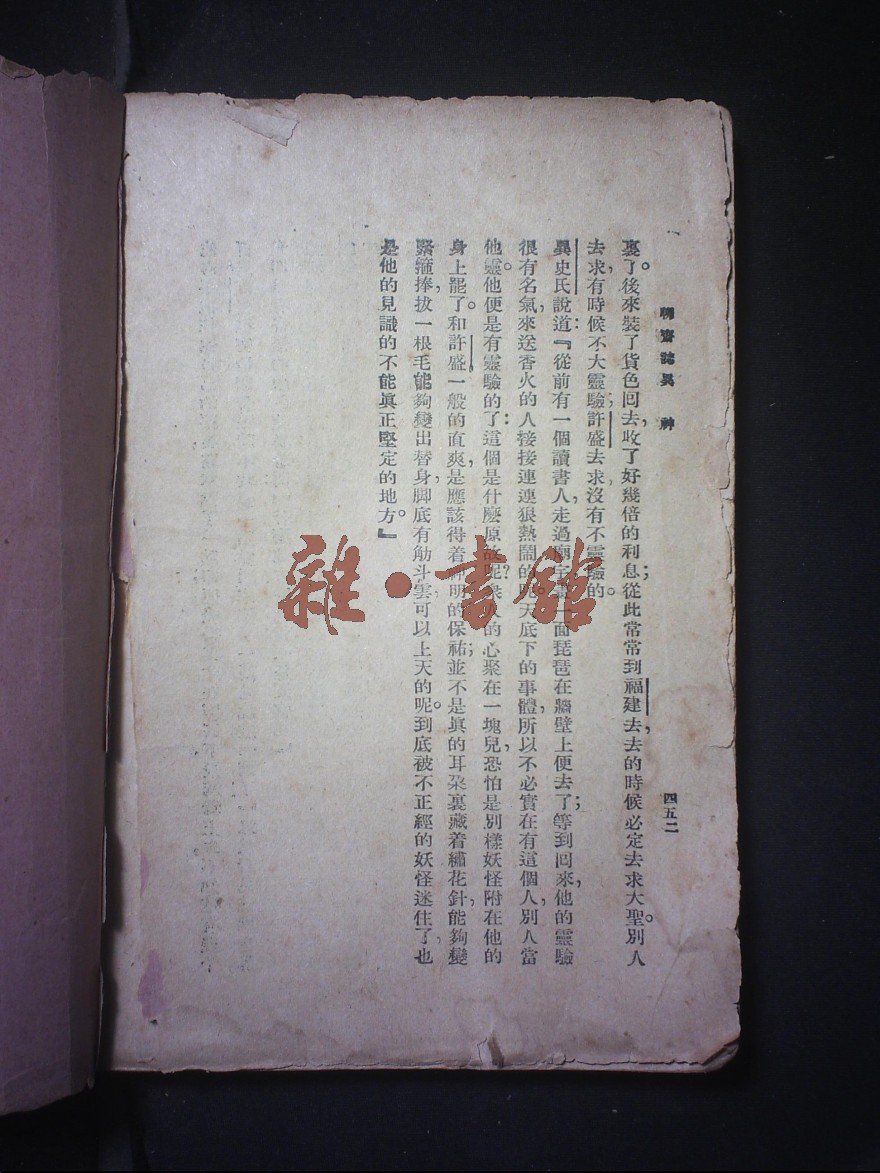 聊齋誌異　神
四五二
裏了。後來裝了貨色回去，收了好幾倍的利息；從此常常到福建去，去的時候必定去求大聖。別人
去求，有時候不大靈驗，許盛去求，沒有不靈驗的。
異史氏說道：『從前有一個讀書人，走過廟宇，畫一面琵琶在牆壁上便去了；等到回來，他的靈驗
很有名氣，來送香火的人，接接連連狠熱鬧的呢。天底下的事體，所以不必實在有這個人，別人當
他靈。他便是有靈驗的了：這個是什麼原故呢？衆人的心聚在一塊兒，恐怕是別樣妖怪附在他的
身上罷了。和許盛一般的直爽，是應該得着神明的保祐；並不是眞的耳朶裏藏着繡花針，能夠變
緊箍捧，拔一根毛能夠變出替身，脚底有觔斗雲可以上天的呢。到底被不正經的妖怪迷住了，也
是他的見識的不能眞正堅定的地方。』
雜·書館